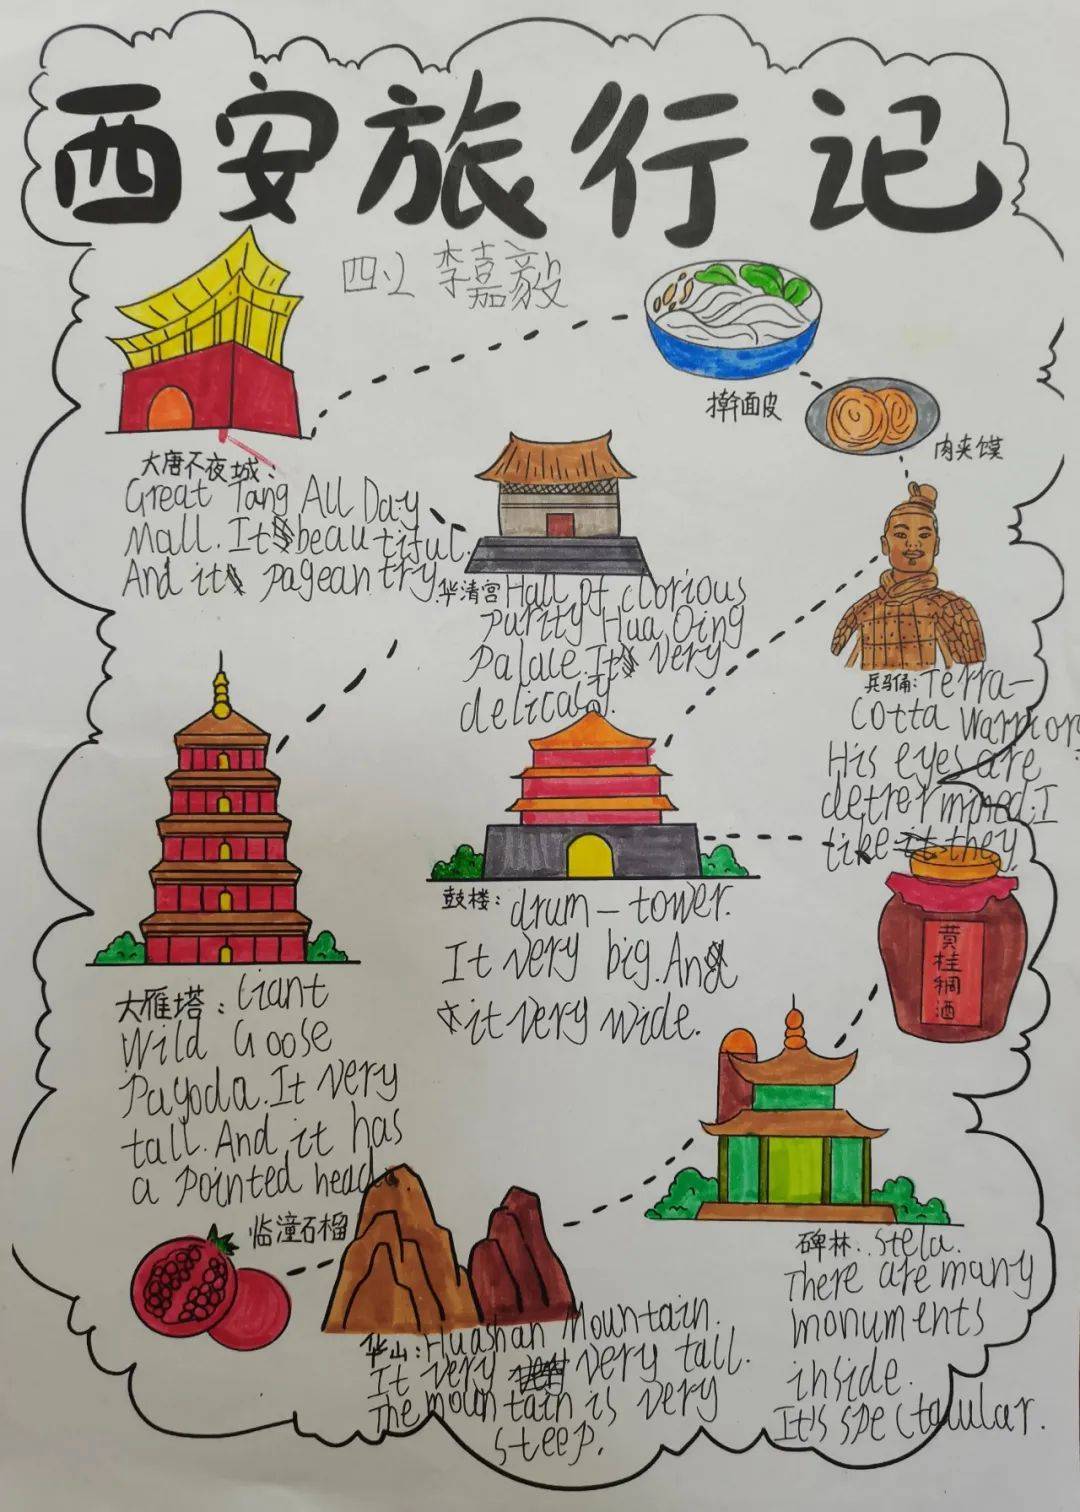 西安旅行记
四.2 李嘉毅
擀面皮
肉夹馍
大唐不夜城：
Great Tang All Day
Mall. It beautiful.
And it pageantry.
华清宫 Hall of Glorious
Purity Hua Qing
Palace. It very
delicacy.
兵马俑：Terra-
Cotta Warrior
His eyes are
detrermined; I
like it they.
鼓楼：drum-tower.
It very big. And
it very wide.
黄桂稠酒
大雁塔：Giant
Wild Goose
Payoda. It very
tall. And it has
a pointed head.
碑林. Stela.
There are many
monuments
inside.
It's spectalular.
临潼石榴
华山：Huashan Mountain.
It very very tall.
The mountain is very
steep.